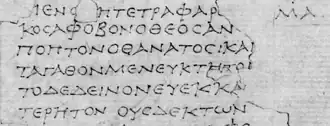 ΜΕΝΟ ΗΤΕΤΡΑΦΑΡ
ΚΟΣΑΦΟΒΟΝΟΘΕΟΣΑΝ
ΠΟΠΤΟΝΟΘΑΝΑΤΟΣΚΑΙ
ΤΑΓΑΘΟΝΜΕΝΕΥΚΤΗΤΟΝ
ΤΟΔΕΔΕΙΝΟΝΕΥΕΚΚΑ
ΤΕΡΗΤΟΝ ΟΥΣΔΕΚΤΩΝ